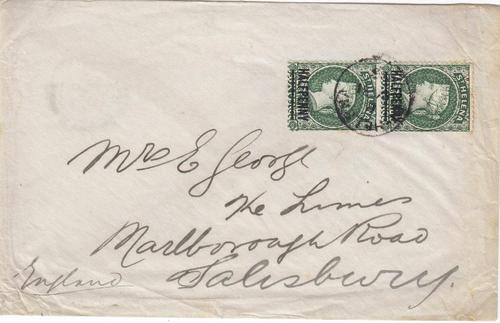 HALFPENNY
ST HELENA
HALFPENNY
ST HELENA
Mrs E George
The Limes
Marlborough Road
Salisbury.
England